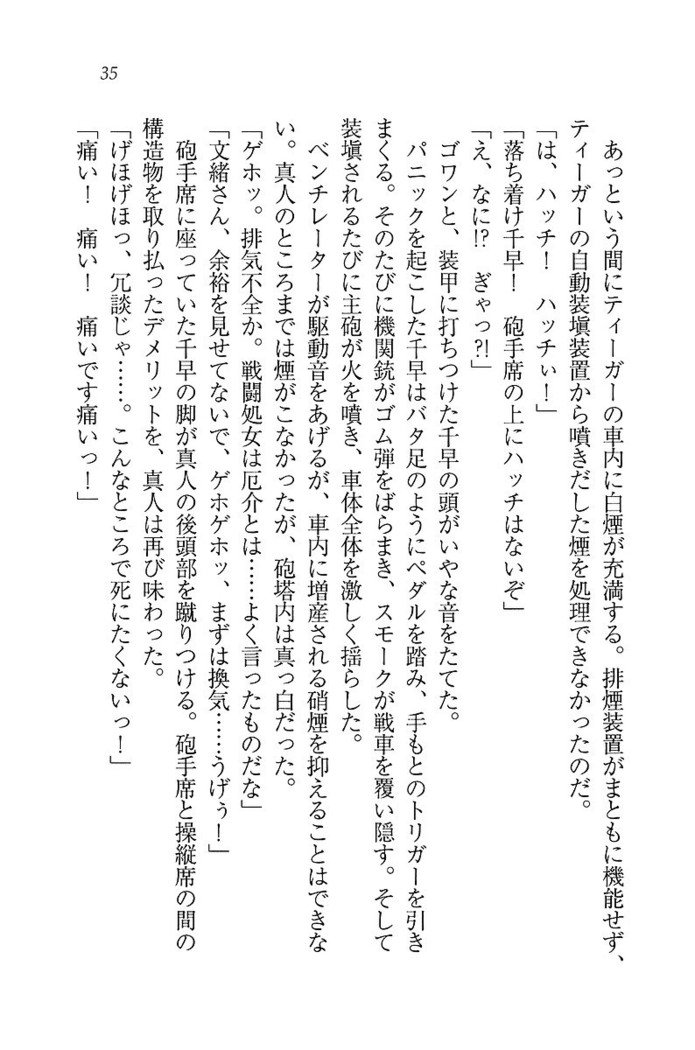 35
あっという間にティーガーの車内に白煙が充満する。排煙装置がまともに機能せず、
ティーガーの自動装塡装置から噴きだした煙を処理できなかったのだ。
「は、ハッチ！　ハッチぃ！」
「落ち着け千早！　砲手席の上にハッチはないぞ」
「え、なに!?　ぎゃっ?!」
ゴワンと、装甲に打ちつけた千早の頭がいやな音をたてた。
パニックを起こした千早はバタ足のようにペダルを踏み、手もとのトリガーを引き
まくる。そのたびに機関銃がゴム弾をばらまき、スモークが戦車を覆い隠す。そして
装塡されるたびに主砲が火を噴き、車体全体を激しく揺らした。
ベンチレーターが駆動音をあげるが、車内に増産される硝煙を抑えることはできな
い。真人のところまでは煙がこなかったが、砲塔内は真っ白だった。
「ゲホッ。排気不全か。戦闘処女は厄介とは……よく言ったものだな」
「文緒さん、余裕を見せてないで、ゲホゲホッ、まずは換気……うげぅ！」
砲手席に座っていた千早の脚が真人の後頭部を蹴りつける。砲手席と操縦席の間の
構造物を取り払ったデメリットを、真人は再び味わった。
「げほげほっ、冗談じゃ……。こんなところで死にたくないっ！」
「痛い！　痛い！　痛いです痛いっ！」